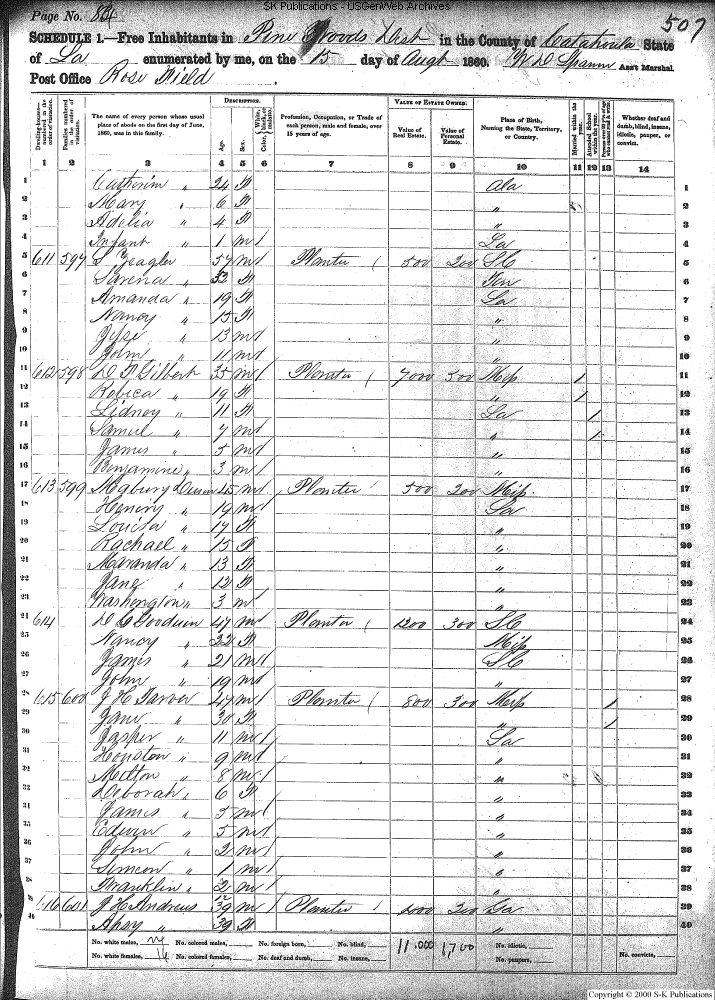 SK Publications - USGenWeb Archives
Page No. 84
507
SCHEDULE 1.—Free Inhabitants in Pine Woods Dist in the County of Catahoula State
of La enumerated by me, on the 15 day of Augt 1860. W D Spann Ass't Marshal.
Post Office Rose Field
Dwelling-houses—numbered in the order of visitation.
Families numbered in the order of visitation.
The name of every person whose usual place of abode on the first day of June, 1860, was in this family.
DESCRIPTION.
Age.
Sex.
Color, White, black, or mulatto.
Profession, Occupation, or Trade of each person, male and female, over 15 years of age.
VALUE OF ESTATE OWNED.
Value of Real Estate.
Value of Personal Estate.
Place of Birth, Naming the State, Territory, or Country.
Married within the year.
Attended School within the year.
Whether deaf and dumb, blind, insane, idiotic, pauper, or convict.
1 2 3 4 5 6 7 8 9 10 11 12 13 14
1 Catherin " 24 F Ala 1
2 Mary " 6 F " 2
3 Adelia " 4 F " 3
4 Infant " 1 m / La 4
5 611 597 S Zeagler 57 m / Planter / 500 200 SC 5
6 " 32 F Ten 6
7 Amanda " 19 F La 7
8 Nancy " 15 F " 8
9 " 13 m / " 9
10 John " 11 m / " 10
11 612 598 Gilbert 35 m / Planter / 7000 500 Mip / 11
12 Rebica " 19 F " / 12
13 Sidney " 11 F La / 13
14 Samuel " 7 m / " / 14
15 James " 5 m / " 15
16 Benjamine " 3 m / " 16
17 613 599 45 m / Planter / 500 200 Mip 17
18 Henry " 19 m / La 18
19 Louisa " 17 F " 19
20 Rachael " 15 F " 20
21 Maranda " 13 F " 21
22 Jane " 12 F " 22
23 Washington " 3 m / " 23
24 614 Goodwin 47 m / Planter / 1200 300 SC 24
25 Nancy " 22 F Mip 25
26 James " 21 m / SC 26
27 John " 19 m / " 27
28 615 600 J H Tarver 47 m / Planter / 800 300 Mip / 28
29 Jane " 30 F " / 29
30 Jasper " 11 m / La 30
31 Houston " 9 m / " 31
32 Milton " 8 m / " 32
33 Deborah " 6 F " 33
34 James " 5 m / " 34
35 Edwin " 5 m / " 35
36 John " 2 m / " 36
37 Simeon " 1 m / " 37
38 Franklin " 2/12 m / " 38
39 616 601 J H Andrews 39 m / Planter / 200 Ga 39
40 Apsy " 39 F " 40
No. white males, 24 No. colored males, No. foreign born, No. blind, 11.000 1700 No. idiotic,
No. white females, 16 No. colored females, No. deaf and dumb, No. insane, No. paupers, No. convicts,
Copyright © 2000 S-K Publications